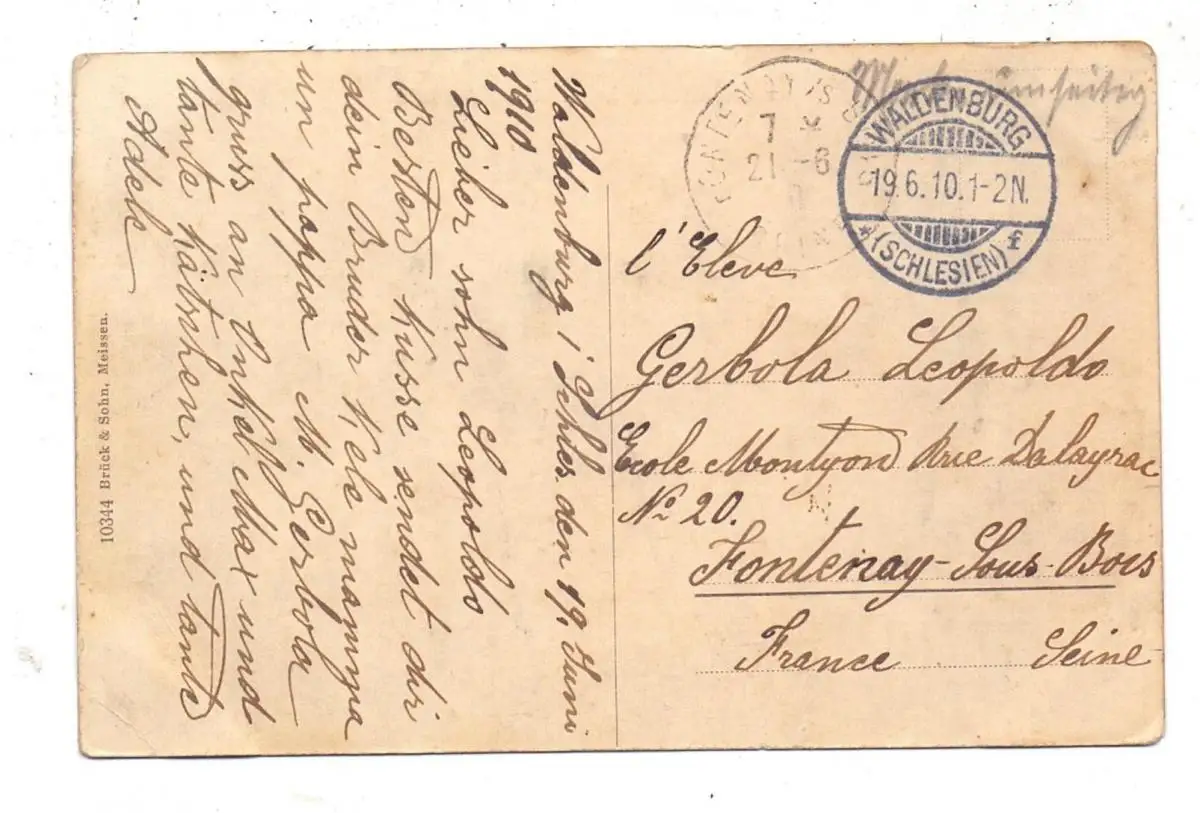 Waldenburg i' Schles. den 19, Juni
1910
Lieber sohn Leopoldo
Besten Kusse sendet dir
dein Bruder Kele mamma
um pappa M. Gerbola
gruss an Onkel Max und
tante Kätschen, und tante
Adele
10344 Brück & Sohn, Meissen.
Marke umseitig
FONTENAY /S
7 *
21 -6
WALDENBURG
19.6.10.1-2N.
* (SCHLESIEN) f
l'Eleve
Gerbola Leopoldo
Ecole Montyon Rue Dalayrac
No 20.
Fontenay-Sous-Bois
France Seine